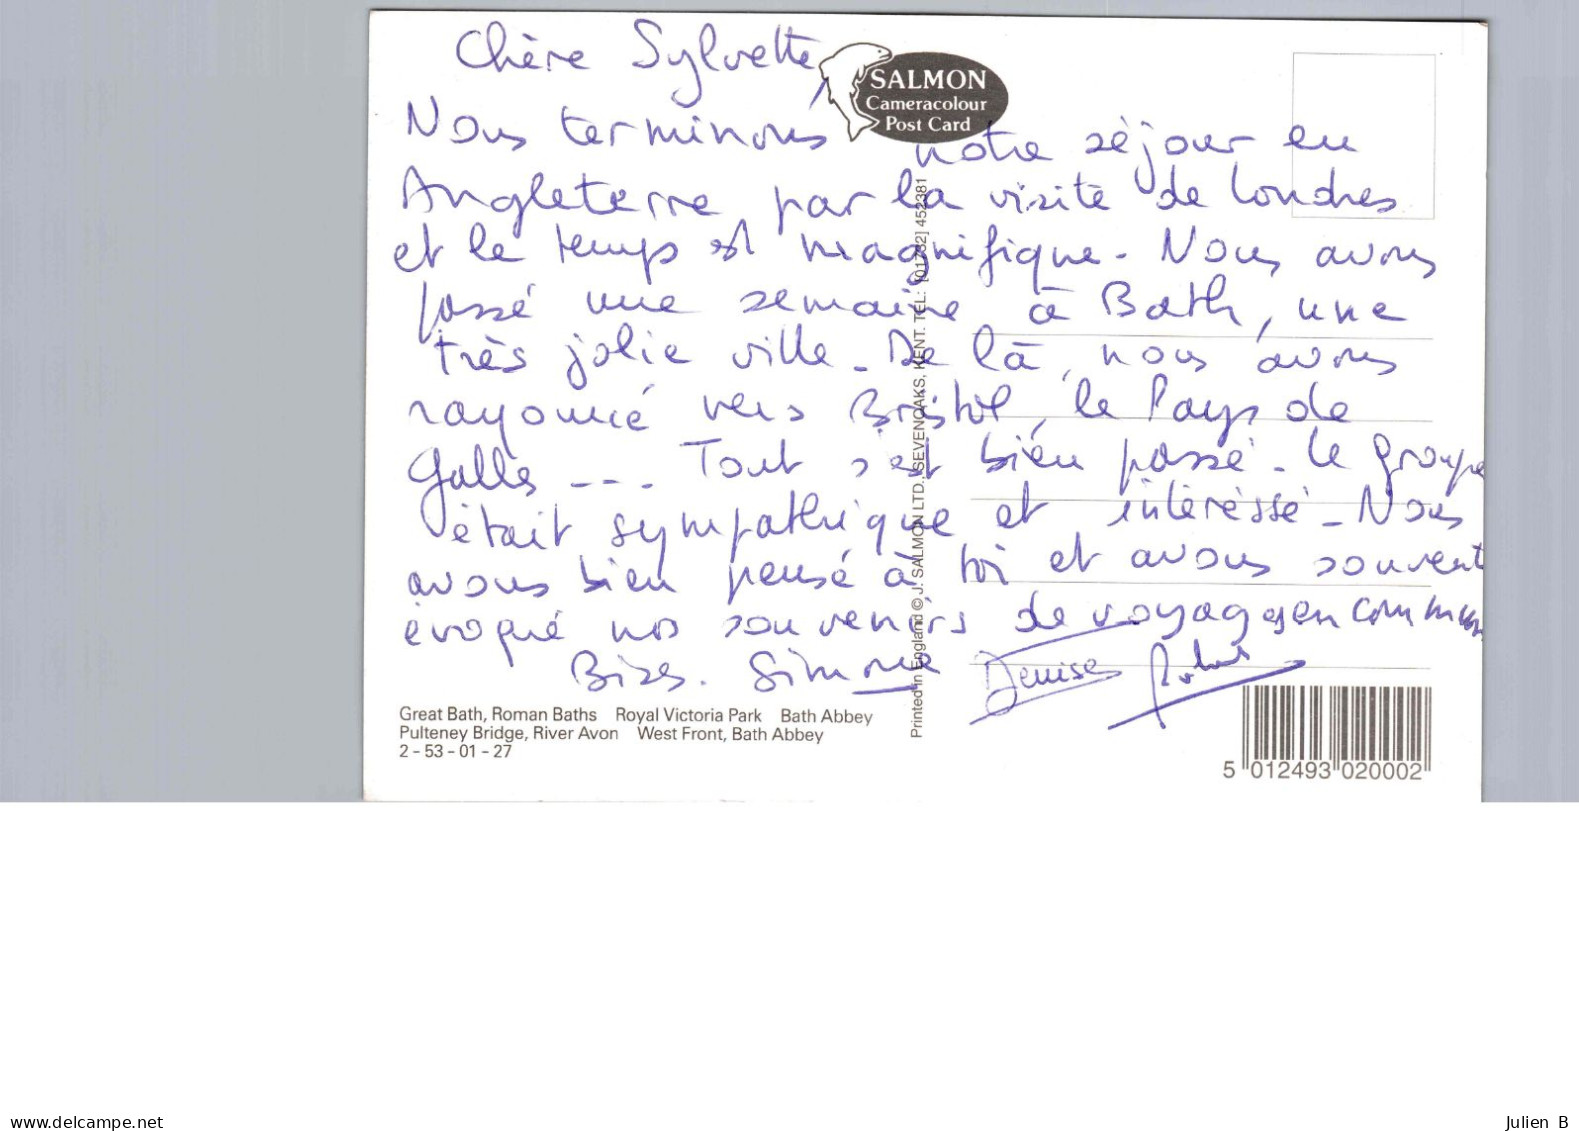 Chère Sylvette,
SALMON
Cameracolour
Post Card
Nous terminons notre séjour en
Angleterre par la visite de Londres
et le temps est magnifique. Nous avons
passé une semaine à Bath, une
très jolie ville. De là, nous avons
rayonné vers Bristol, le Pays de
Galles --- Tout s'est bien passé. Le groupe
était sympathique et intéressé. Nous
avons bien pensé à toi et avons souvent
évoqué nos souvenirs de voyages en commun.
Bises. Simone Denise
Printed in England © J. SALMON LTD., SEVENOAKS, KENT. TEL: [01732] 452381
Great Bath, Roman Baths Royal Victoria Park Bath Abbey
Pulteney Bridge, River Avon West Front, Bath Abbey
2 - 53 - 01 - 27
5 012493 020002
www.delcampe.net
Julien B